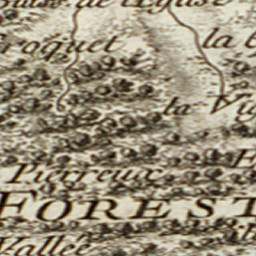 de l'Eglise
Croquet
la
la Vig
Pierreux
FOREST
Vallée